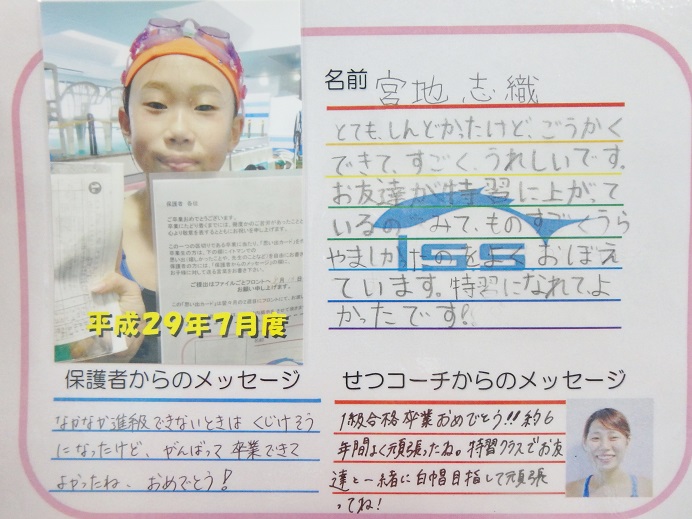 名前 宮地 志織
とても、しんどかったけど、ごうかく
できて、すごく、うれしいです。
お友達が特習に上がって
いるのをみて、ものすごくうら
やましかったのをよくおぼえ
ています。特習になれてよ
かったです!
ISS
保護者 各位
ご卒業おめでとうございます。
ご提出はファイルごとフロントへ
お願い申し上げます。
平成29年7月度
保護者からのメッセージ
なかなか進級できないときは くじけそう
になったけど、がんばって 卒業できて
よかったね、おめでとう!
せつコーチからのメッセージ
1級合格卒業おめでとう!!約6
年間よく頑張ったね。特習クラスでお友
達と一緒に白帽目指して頑張
ってね!